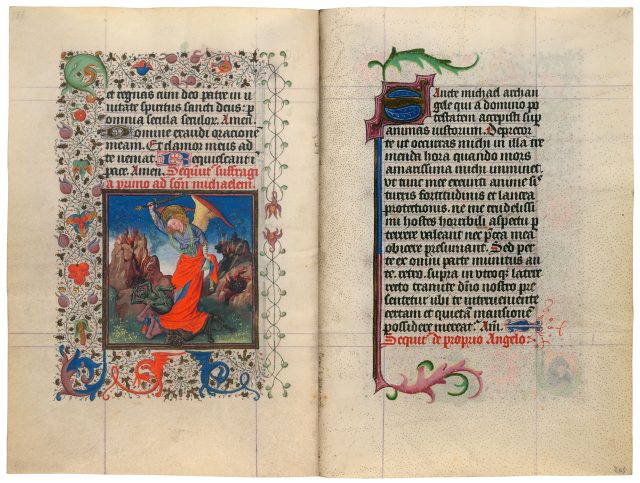 et regnas cum deo patre in u
nitate spiritus sancti deus: p
omnia secula seculor. Amen.
Domine exaudi oratione
meam. Et clamor meus ad
te veniat. Requiescant i
pace. Amen. Sequitur suffragi
a primo ad scm michaelem
Sancte michael archan
gele qui a domino po
testatem accepisti sup
animas iustorum. Deprecor
te ut occuras michi in illa tre
menda hora quando mors
amarissima michi imminet
ut tunc me exeunti anime si
fortitudinis et lancea
protectionis. ne me crudelissi
mi hostes horribili aspectu p
terrere valeant nec pcca mea
obicere presumant. Sed per
te ex omni parte munitus an
te. retro. supra in utroq latere
recto tramite dno nostro pre
sentetur ubi te interveniente
certam et quietam mansionem
possidere mereat. Am.
Sequitur de proprio Angelo.